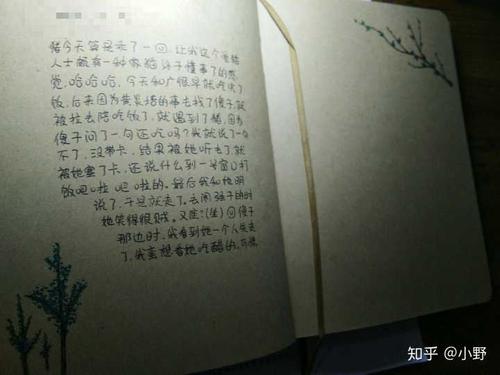 猪今天算是乖了一回,让我这个爱猪
人士颇有一种家猪 仔子懂事了的感
觉,哈哈哈,今天和广很早就吃完了
饭,后来因为黄 的事去找了傻子,就
被拉去陪吃饭了,就遇到了猪,因为
傻子问了一句还吃吗?我就说了一句
不了,没带卡,结果被她听去了,就
被她塞了卡,还说什么到一号窗口打
饭吧啦 吧啦的。最后我和她明
说了,于是就走了。去闹 子的时
她笑得很贼。又座:(坐)回傻子
那边时,我看到她一个人先走
了,我 想看她吃醋的,可惜
知乎 @小野